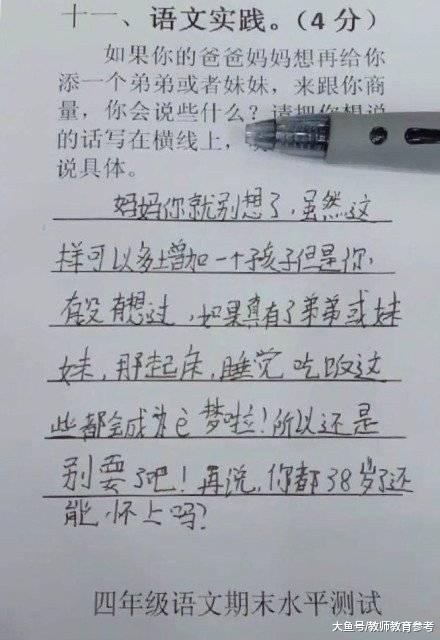 十一、语文实践。（4分）
如果你的爸爸妈妈想再给你
添一个弟弟或者妹妹，来跟你商
量，你会说些什么？请把你想说
的话写在横线上，
说具体。
妈妈你就别想了，虽然这
样可以多增加一个孩子但是你，
有没有想过，如果真有了弟弟或妹
妹，那起床，睡觉吃饭这
些都会成为它梦啦！所以还是
别要了吧！再说，你都38岁了还
能怀上吗？
四年级语文期末水平测试
大鱼号/教师教育参考